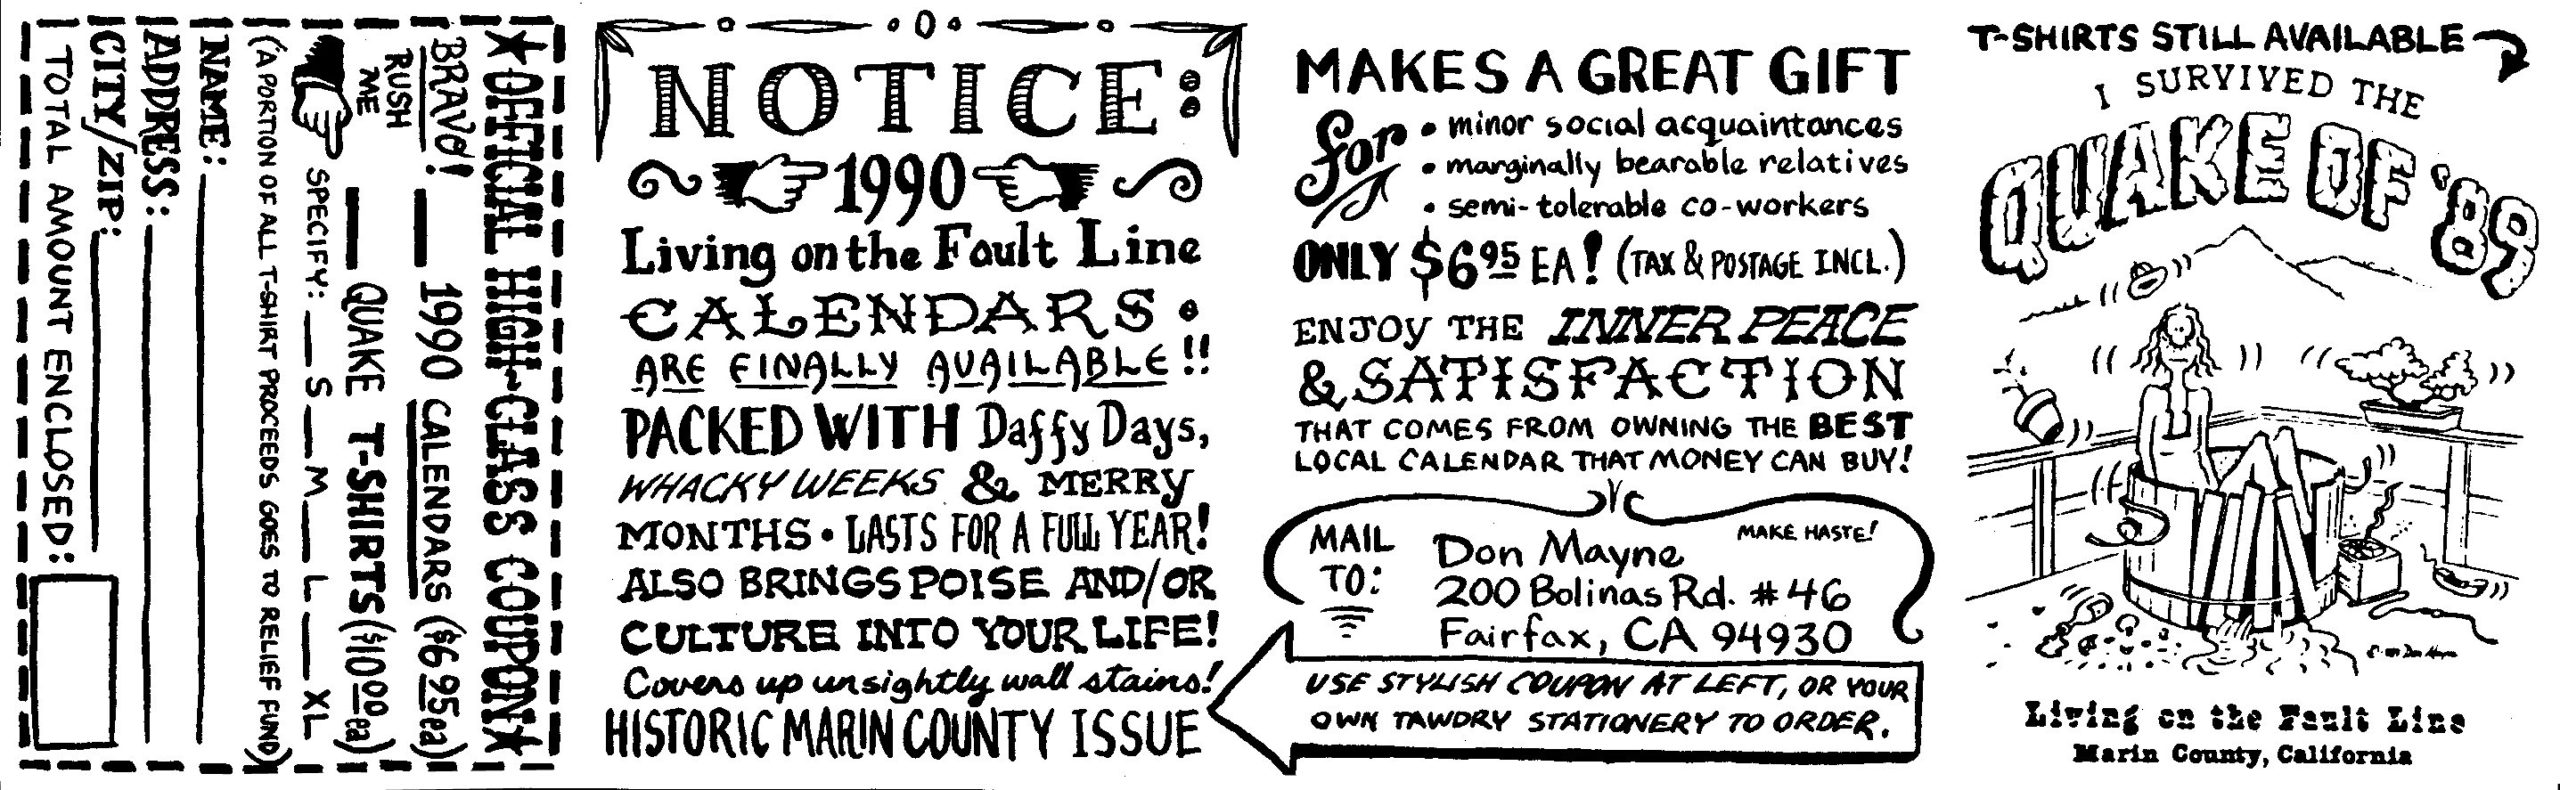 ★OFFICIAL HIGH-CLASS COUPON★
BRAVO! ___ 1990 CALENDARS ($6.95 ea)
RUSH ME ___ QUAKE T-SHIRTS ($10.00 ea)
SPECIFY: __ S __ M __ L __ XL
(A PORTION OF ALL T-SHIRT PROCEEDS GOES TO RELIEF FUND)
NAME:
ADDRESS:
CITY/ZIP:
TOTAL AMOUNT ENCLOSED:
NOTICE:
1990
Living on the Fault Line
CALENDARS •
ARE FINALLY AVAILABLE!!
PACKED WITH Daffy Days,
WHACKY WEEKS & MERRY
MONTHS • LASTS FOR A FULL YEAR!
ALSO BRINGS POISE AND/OR
CULTURE INTO YOUR LIFE!
Covers up unsightly wall stains!
HISTORIC MARIN COUNTY ISSUE
MAKES A GREAT GIFT
for • minor social acquaintances
• marginally bearable relatives
• semi-tolerable co-workers
ONLY $6.95 EA! (TAX & POSTAGE INCL.)
ENJOY THE INNER PEACE
& SATISFACTION
THAT COMES FROM OWNING THE BEST
LOCAL CALENDAR THAT MONEY CAN BUY!
MAIL TO:
MAKE HASTE!
Don Mayne
200 Bolinas Rd. #46
Fairfax, CA 94930
USE STYLISH COUPON AT LEFT, OR YOUR
OWN TAWDRY STATIONERY TO ORDER.
T-SHIRTS STILL AVAILABLE
I SURVIVED THE
QUAKE OF '89
Don Mayne
Living on the Fault Line
Marin County, California